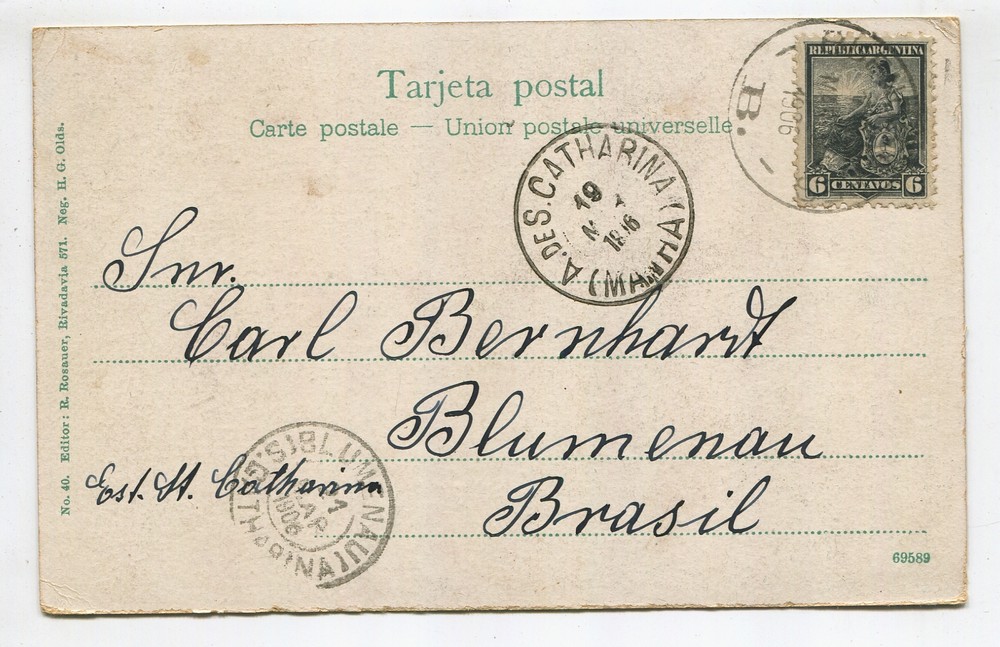 Tarjeta postal
Carte postale — Union postale universelle
REPUBLICA ARGENTINA
6 CENTAVOS 6
B.
1906
A. DE S. CATHARINA
19
Snr.
Carl Bernhardt
Blumenau
Est. St. Catharina
Brasil
BLUMENAU
1906
No. 40. Editor: R. Rosauer, Rivadavia 571. Neg. H. G. Olds.
69589